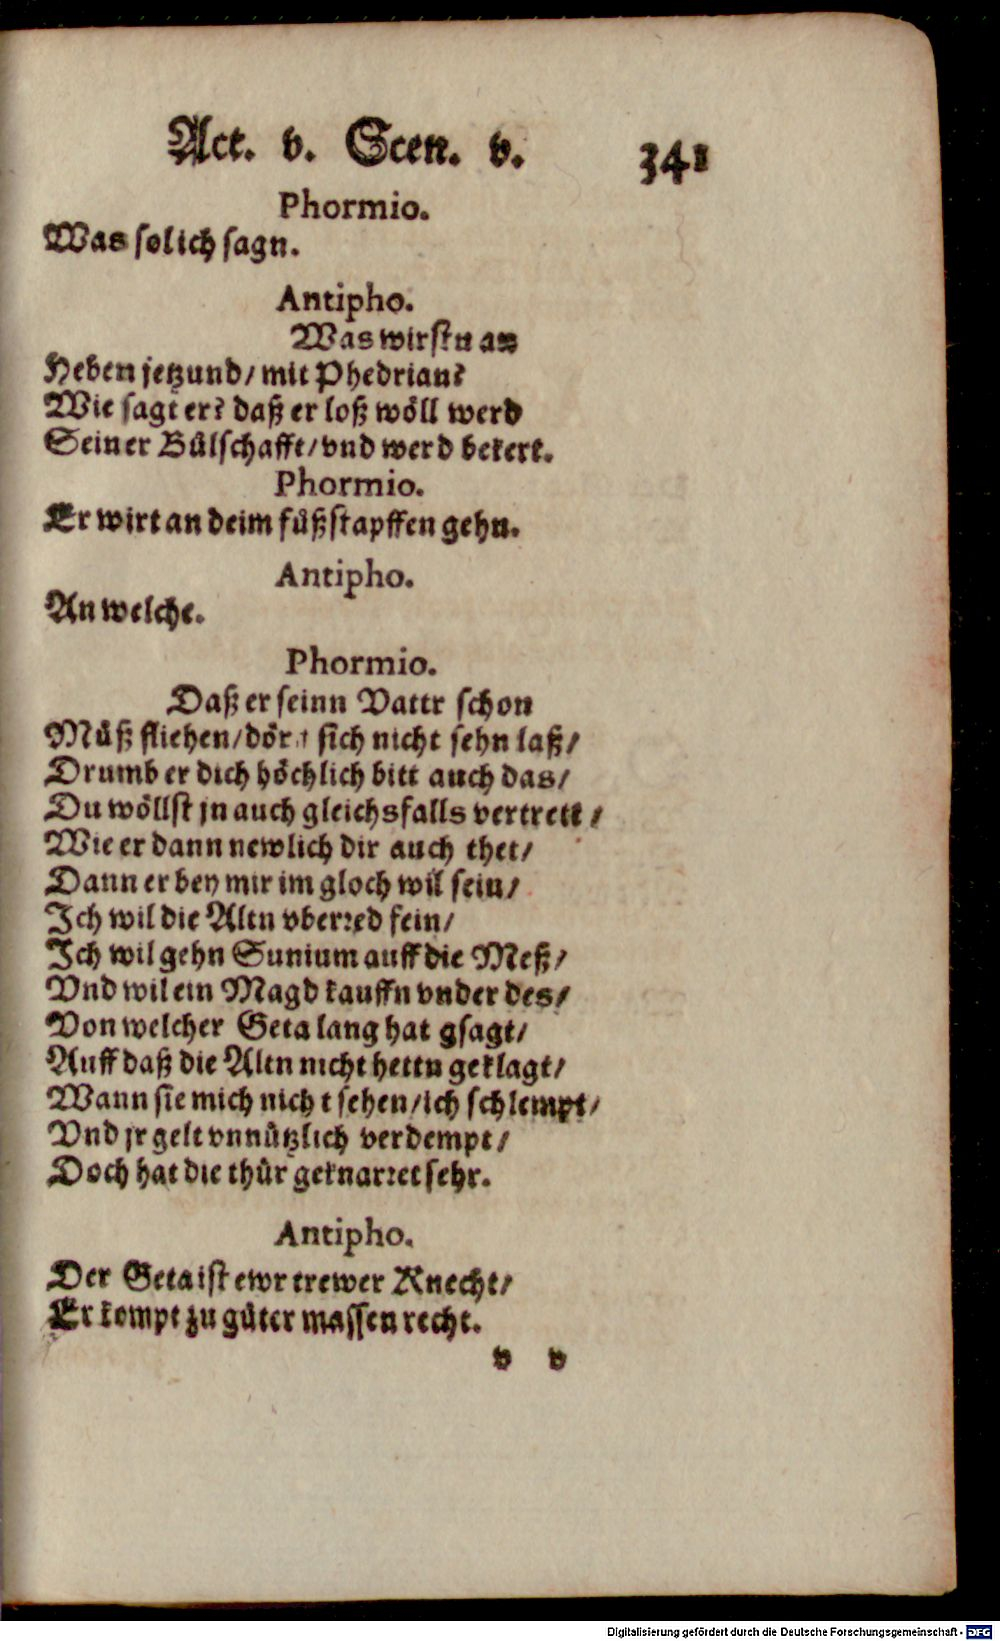 Act. v. Scen. v. 341
Phormio.
Was solich sagn.
Antipho.
Was wirstu an
Heben jetzund/ mit Phedrian?
Wie sagt er? daß er loß wöll werd
Seiner Bůlschafft/ vnd werd bekert.
Phormio.
Er wirt an deim fůßstapffen gehn.
Antipho.
An welche.
Phormio.
Daß er seinn Vattr schon
Můß fliehen/ dör sich nicht sehn laß/
Drumb er dich höchlich bitt auch das/
Du wöllst jn auch gleichsfalls vertrett/
Wie er dann newlich dir auch thet/
Dann er bey mir im gloch wil sein/
Ich wil die Altn vberred fein/
Ich wil gehn Sunium auff die Meß/
Vnd wil ein Magd kauffn vnder des/
Von welcher Geta lang hat gsagt/
Auff daß die Altn nicht hettn geklagt/
Wann sie mich nicht sehen/ ich schlempt/
Vnd jr gelt vnnützlich verdempt/
Doch hat die thür geknarret sehr.
Antipho.
Der Geta ist ewr trewer Knecht/
Er kompt zu gůter massen recht.
v v
Digitalisierung gefördert durch die Deutsche Forschungsgemeinschaft - DFG